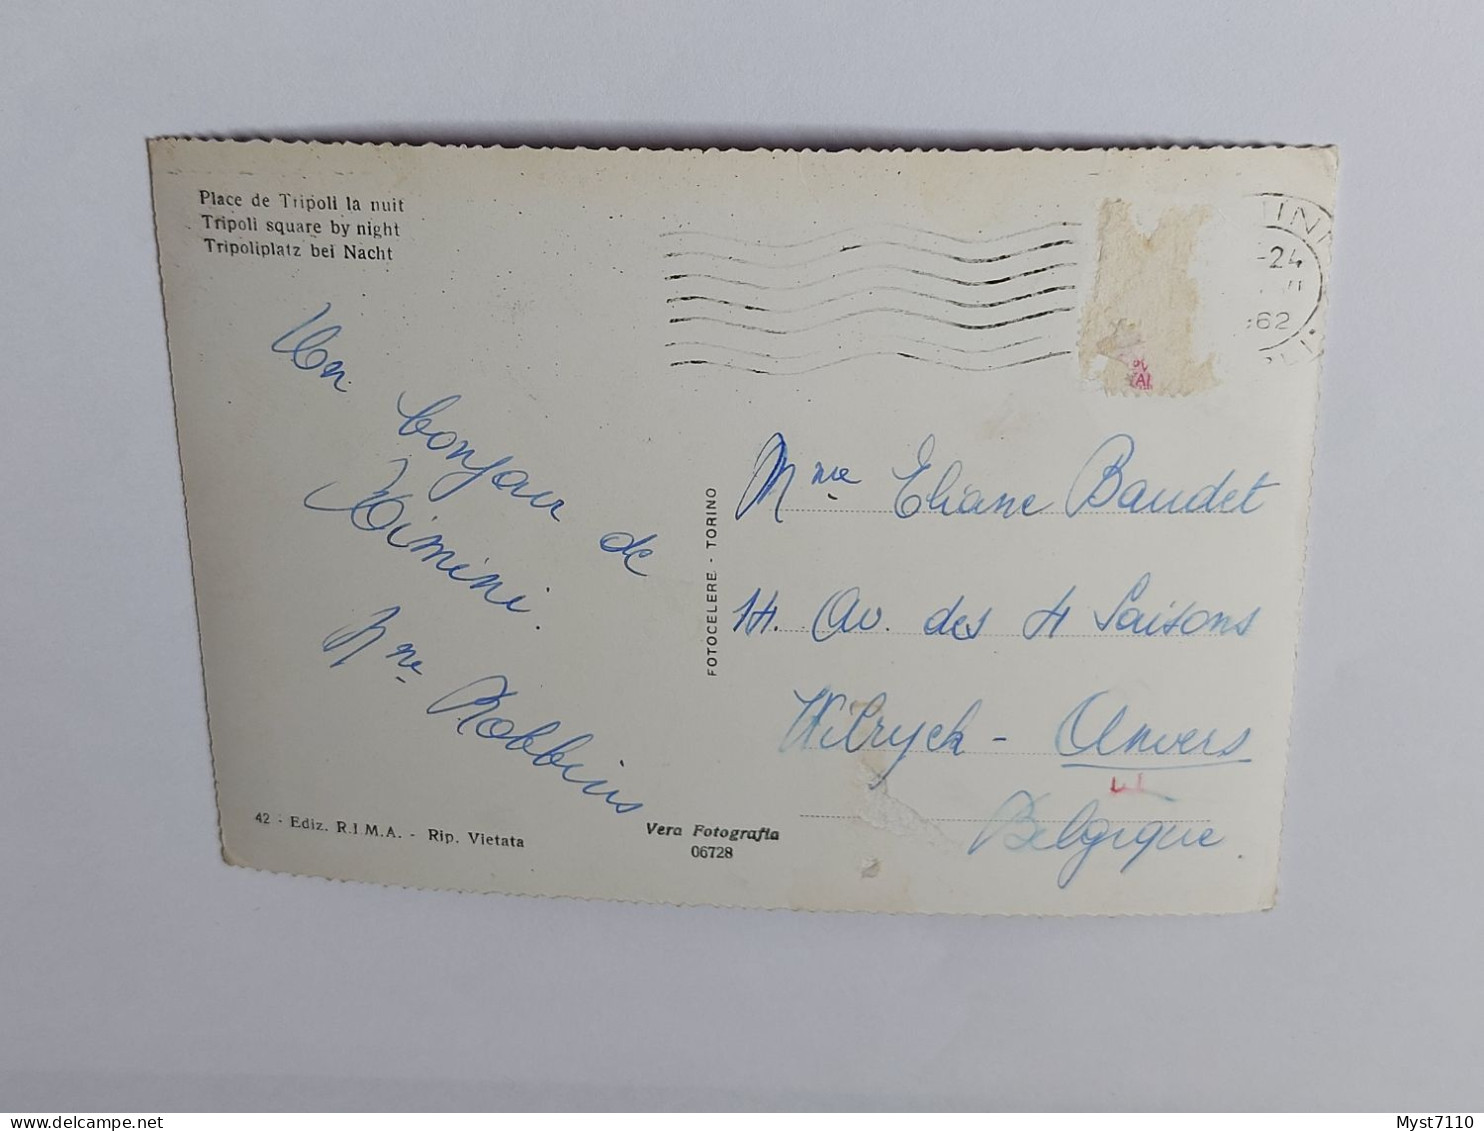 Place de Tripoli la nuit
Tripoli square by night
Tripoliplatz bei Nacht
Un bonjour de
Rimini.
Mme Robbins
42 - Ediz. R.I.M.A. - Rip. Vietata
Vera Fotografia
06728
FOTOCELERE - TORINO
-24
62
Mme Eliane Baudet
14. Av. des 4 Saisons
Wilryck - Anvers
Belgique.
Myst7110